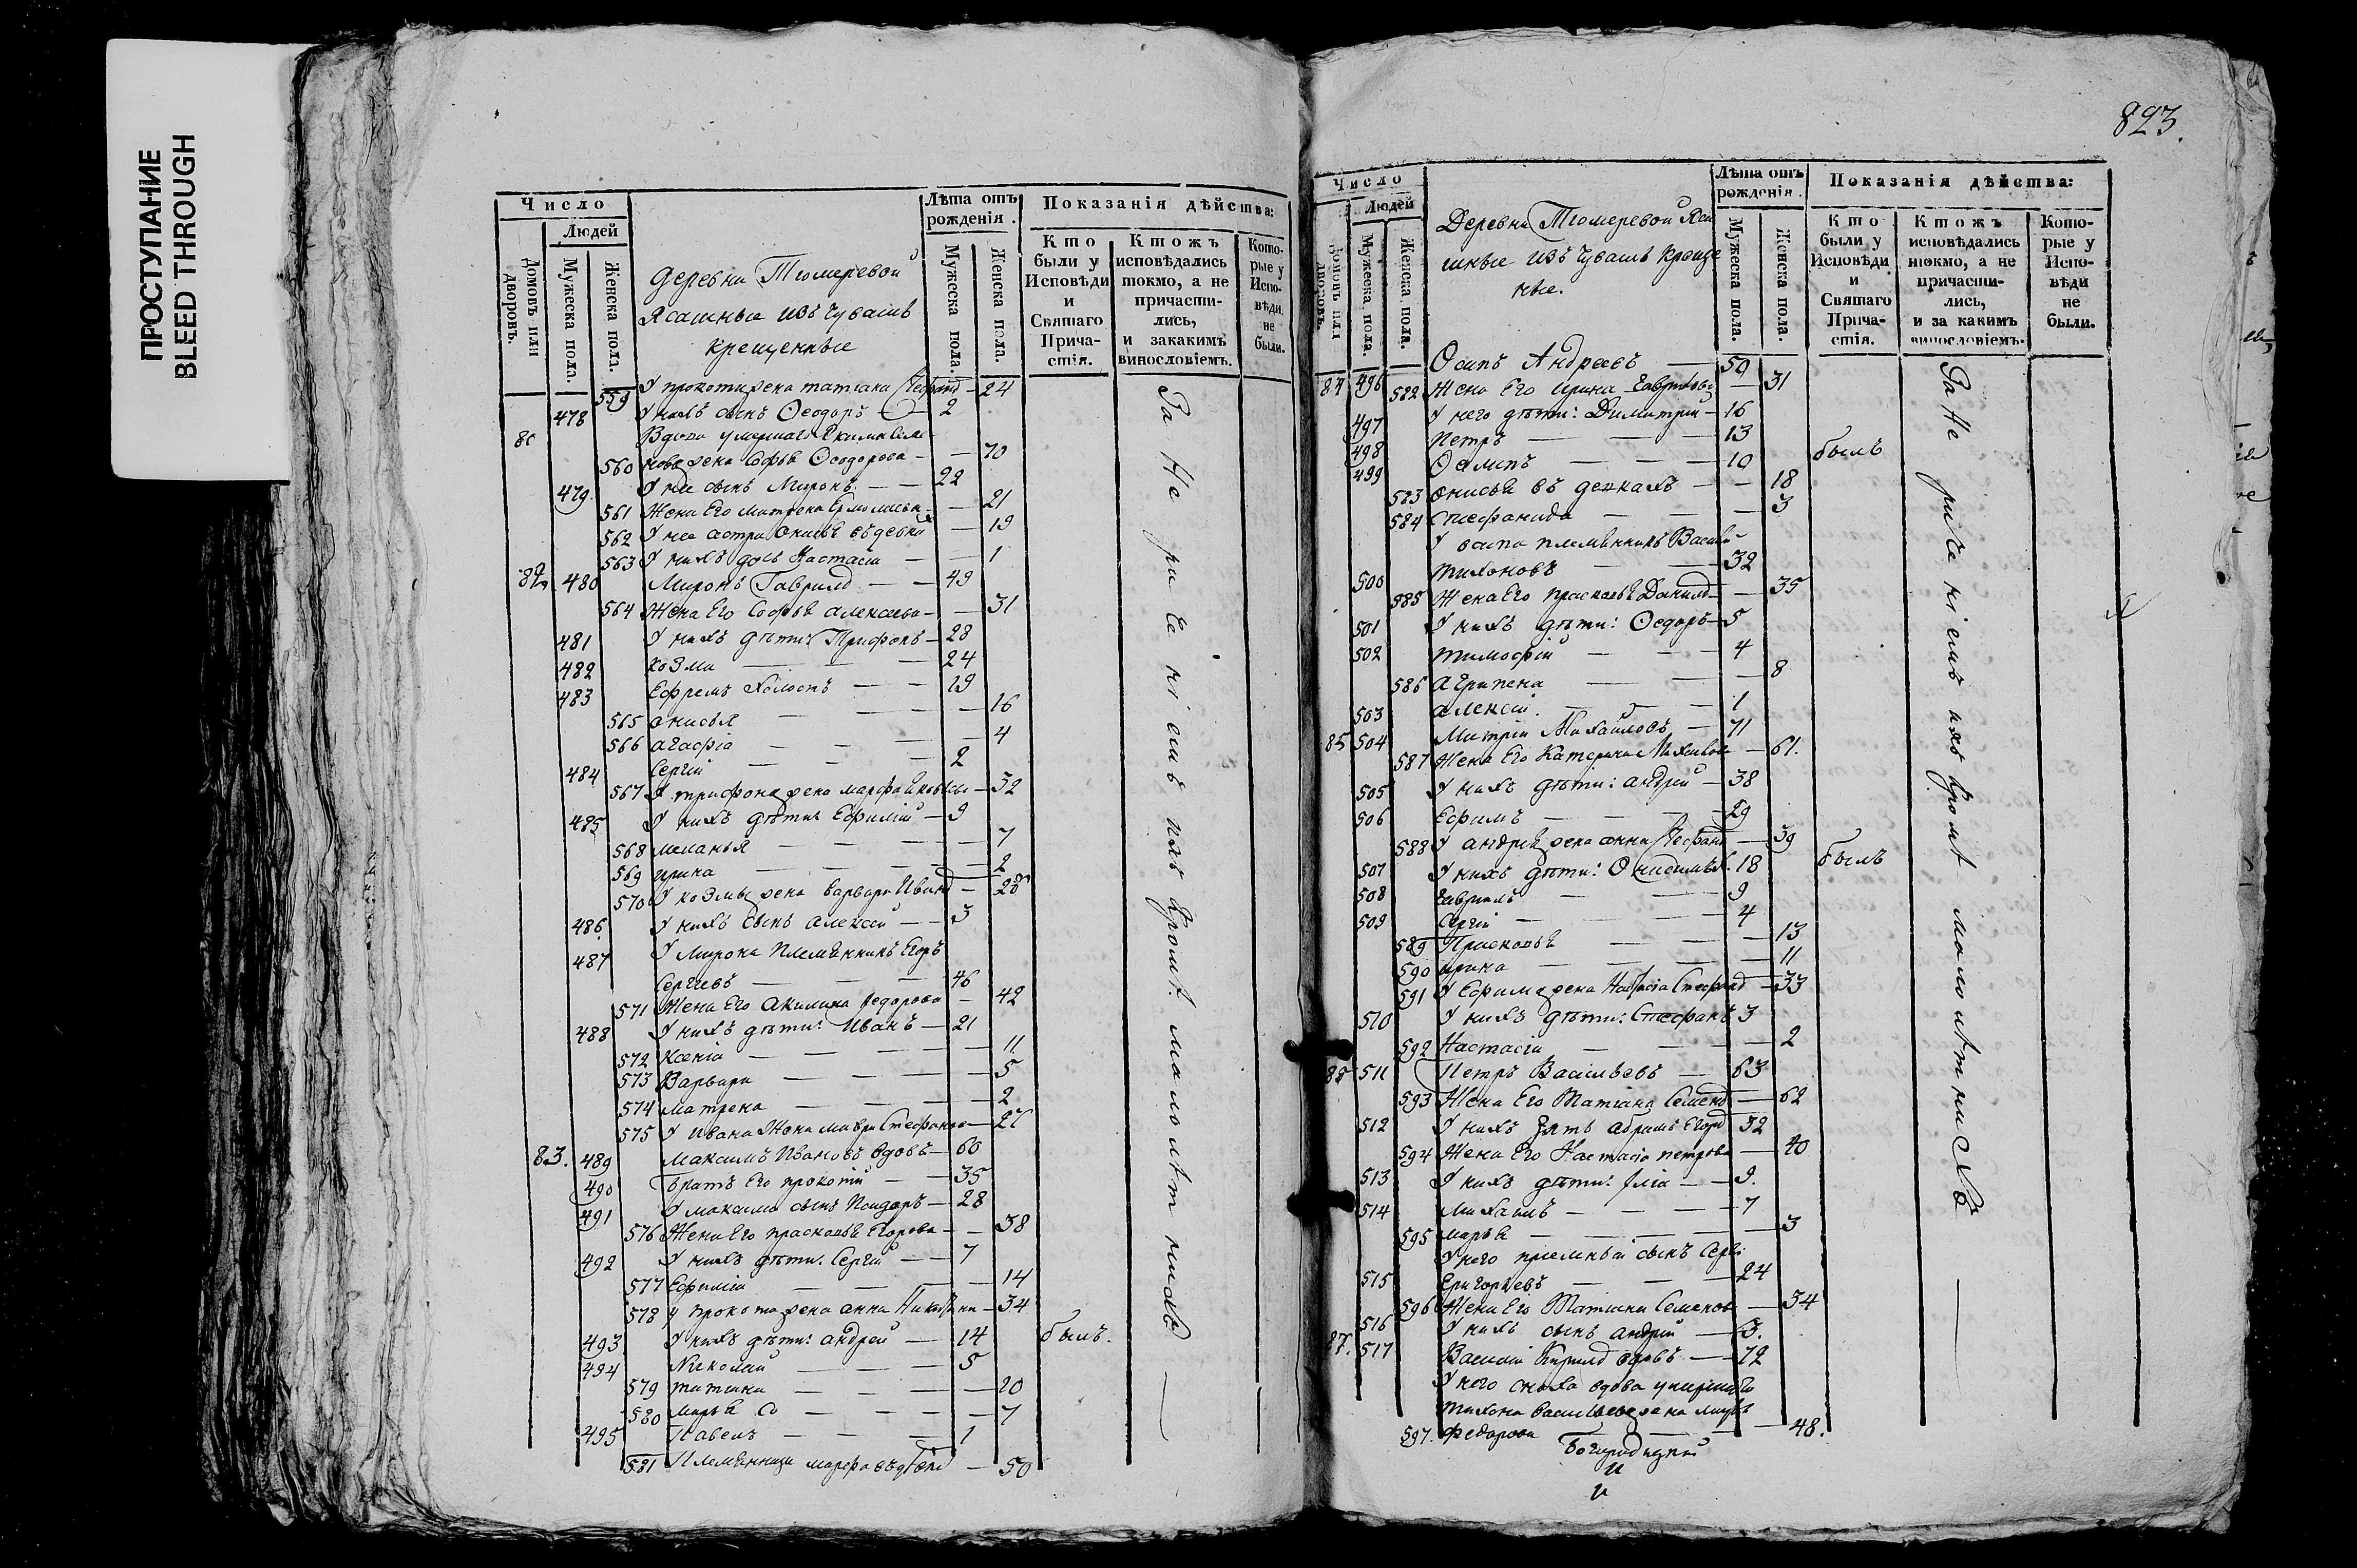 ПРОСТУПАНИЕ
BLEED THROUGH
Число
Людей
Домовъ или дворовъ.
Мужеска пола.
Женска пола.
Деревни Тюмеревой
Ясашные изъ Чувашъ
крещенные
Лѣта отъ рожденія.
Мужеска пола.
Женска пола.
Показанія дѣйства:
Кто были у Исповѣди и Святаго Прича-стія.
Ктожъ исповѣдались токмо, а не причасти-лись, и закакимъ винословіемъ.
Кото-рые у Испо-вѣди не были.
559 У прокопи жена татіана 24
478 У нихъ сынъ Ѳеодоръ — 2
Вдова умершаго
560 жена Софья Ѳеодорова — 70
479. У нее сынъ Миронъ — 22
561 Жена Его матрена — 21
562 У нее сестра — 19
563 У нихъ дочь Настасія — 1
82 480 Миронъ Гаврилъ — 49
564 Жена Его Софья алексеева — 31
481 У нихъ дѣти: Трифонъ — 28
482 козма — 24
483 Ефремъ холостъ — 19
565 анисья — 16
566 агафіа — 4
484 Сергій — 2
567 У трифона жена марфа — 32
485 У нихъ дѣти Ефимій — 9
568 меланья — 7
569 ирина — 2
570 У козмы жена варвара — 28
486. У нихъ сынъ алексей — 3
487 У Мирона племянникъ Егоръ
Сергеевъ — 46
571 Жена Его акилина федорова — 42
488 У нихъ дѣти: Иванъ — 21
572 ксеніа — 11
573 Варвара — 5
574 матрена — 2
575 У ивана Жена мавра Стефанова — 26
83. 489 максимъ Ивановъ вдовъ — 60
490 братъ Его прокопій — 35
491 У максима сынъ — 28
576 Жена Его прасковья Егорова — 38
492 У нихъ дѣти: Сергій — 7
577 Ефиміа — 14
578 У прокопа жена анна — 34
493 У нихъ дѣти: андрей — 14 былъ.
494 Николай — 5
579 татіана — 20
580 марья — 7
495 Павелъ — 1
581 Племянница марфа — 50
За Не рачениемъ ихъ кромѣ малолѣтнихъ
823.
Число
Людей
Домовъ или дворовъ.
Мужеска пола.
Женска пола.
Деревни Тюмеревой Яса
шные изъ Чувашъ Креще
ные.
Лѣта отъ рожденія.
Мужеска пола.
Женска пола.
Показанія дѣйства:
Кто были у Исповѣди и Святаго Прича-стія.
Ктожъ исповѣдались токмо, а не причасти-лись, и за какимъ винословіемъ.
Кото-рые у Испо-вѣди не были.
84 496 Осипъ Андреевъ — 59
582 Жена Его ирина — 31
497 У него дѣти: Димитрій — 16
498 Петръ — 13 былъ
499 Осипъ — 10
583 анисья въ девкахъ — 18
584 Стефанида — 3
У осипа племянникъ Василій
500 тихоновъ — 32
585 Жена Его прасковья — 35
501 У нихъ дѣти: Ѳеодоръ — 5
502 тимофій — 4
586 агрипена — 8
503 алексій — 1
85 504 Митрій Михайловъ — 71
587 Жена Его Катерина — 61.
505 У нихъ дѣти: андрей — 38
506 Ефимъ — 29
588 У андрея жена анна — 39
507 У нихъ дѣти: 18 былъ
508 Гаврилъ — 9
509 Сергій — 4
589 Прасковья — 13
590 ирина — 11
591 У Ефима жена Настасіа — 33
510 У нихъ дѣти: Стефанъ 3
592 Настасіа — 2
86 511 Петръ Васильевъ — 63
593 Жена Его Татіана — 62
512 У нихъ зять абрамъ 32
594 Жена Его Настасіа петрова — 40
513 У нихъ дѣти: Иліа — 9.
514 Михаилъ — 7
595 марья — 3
У него приемный сынъ
515 Григорьевъ — 24
596 Жена Его Татиана Семенова — 34
516 У нихъ сынъ андрей — 3.
87. 517 Василій Кирилъ вдовъ — 72
У него сноха вдова умершаго
тихона Васильева жена
597. Федорова — 48.
За Не рачениемъ ихъ кромѣ малолѣтнихъ